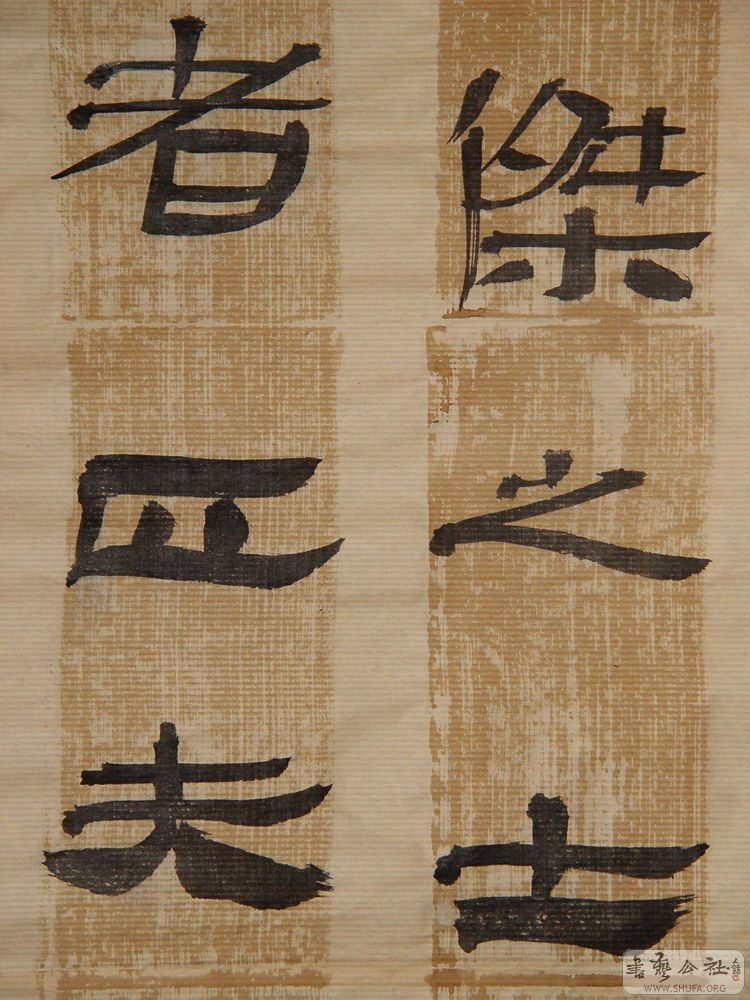 傑之士
者匹夫
書藝公社
WWW.SHUFA.ORG